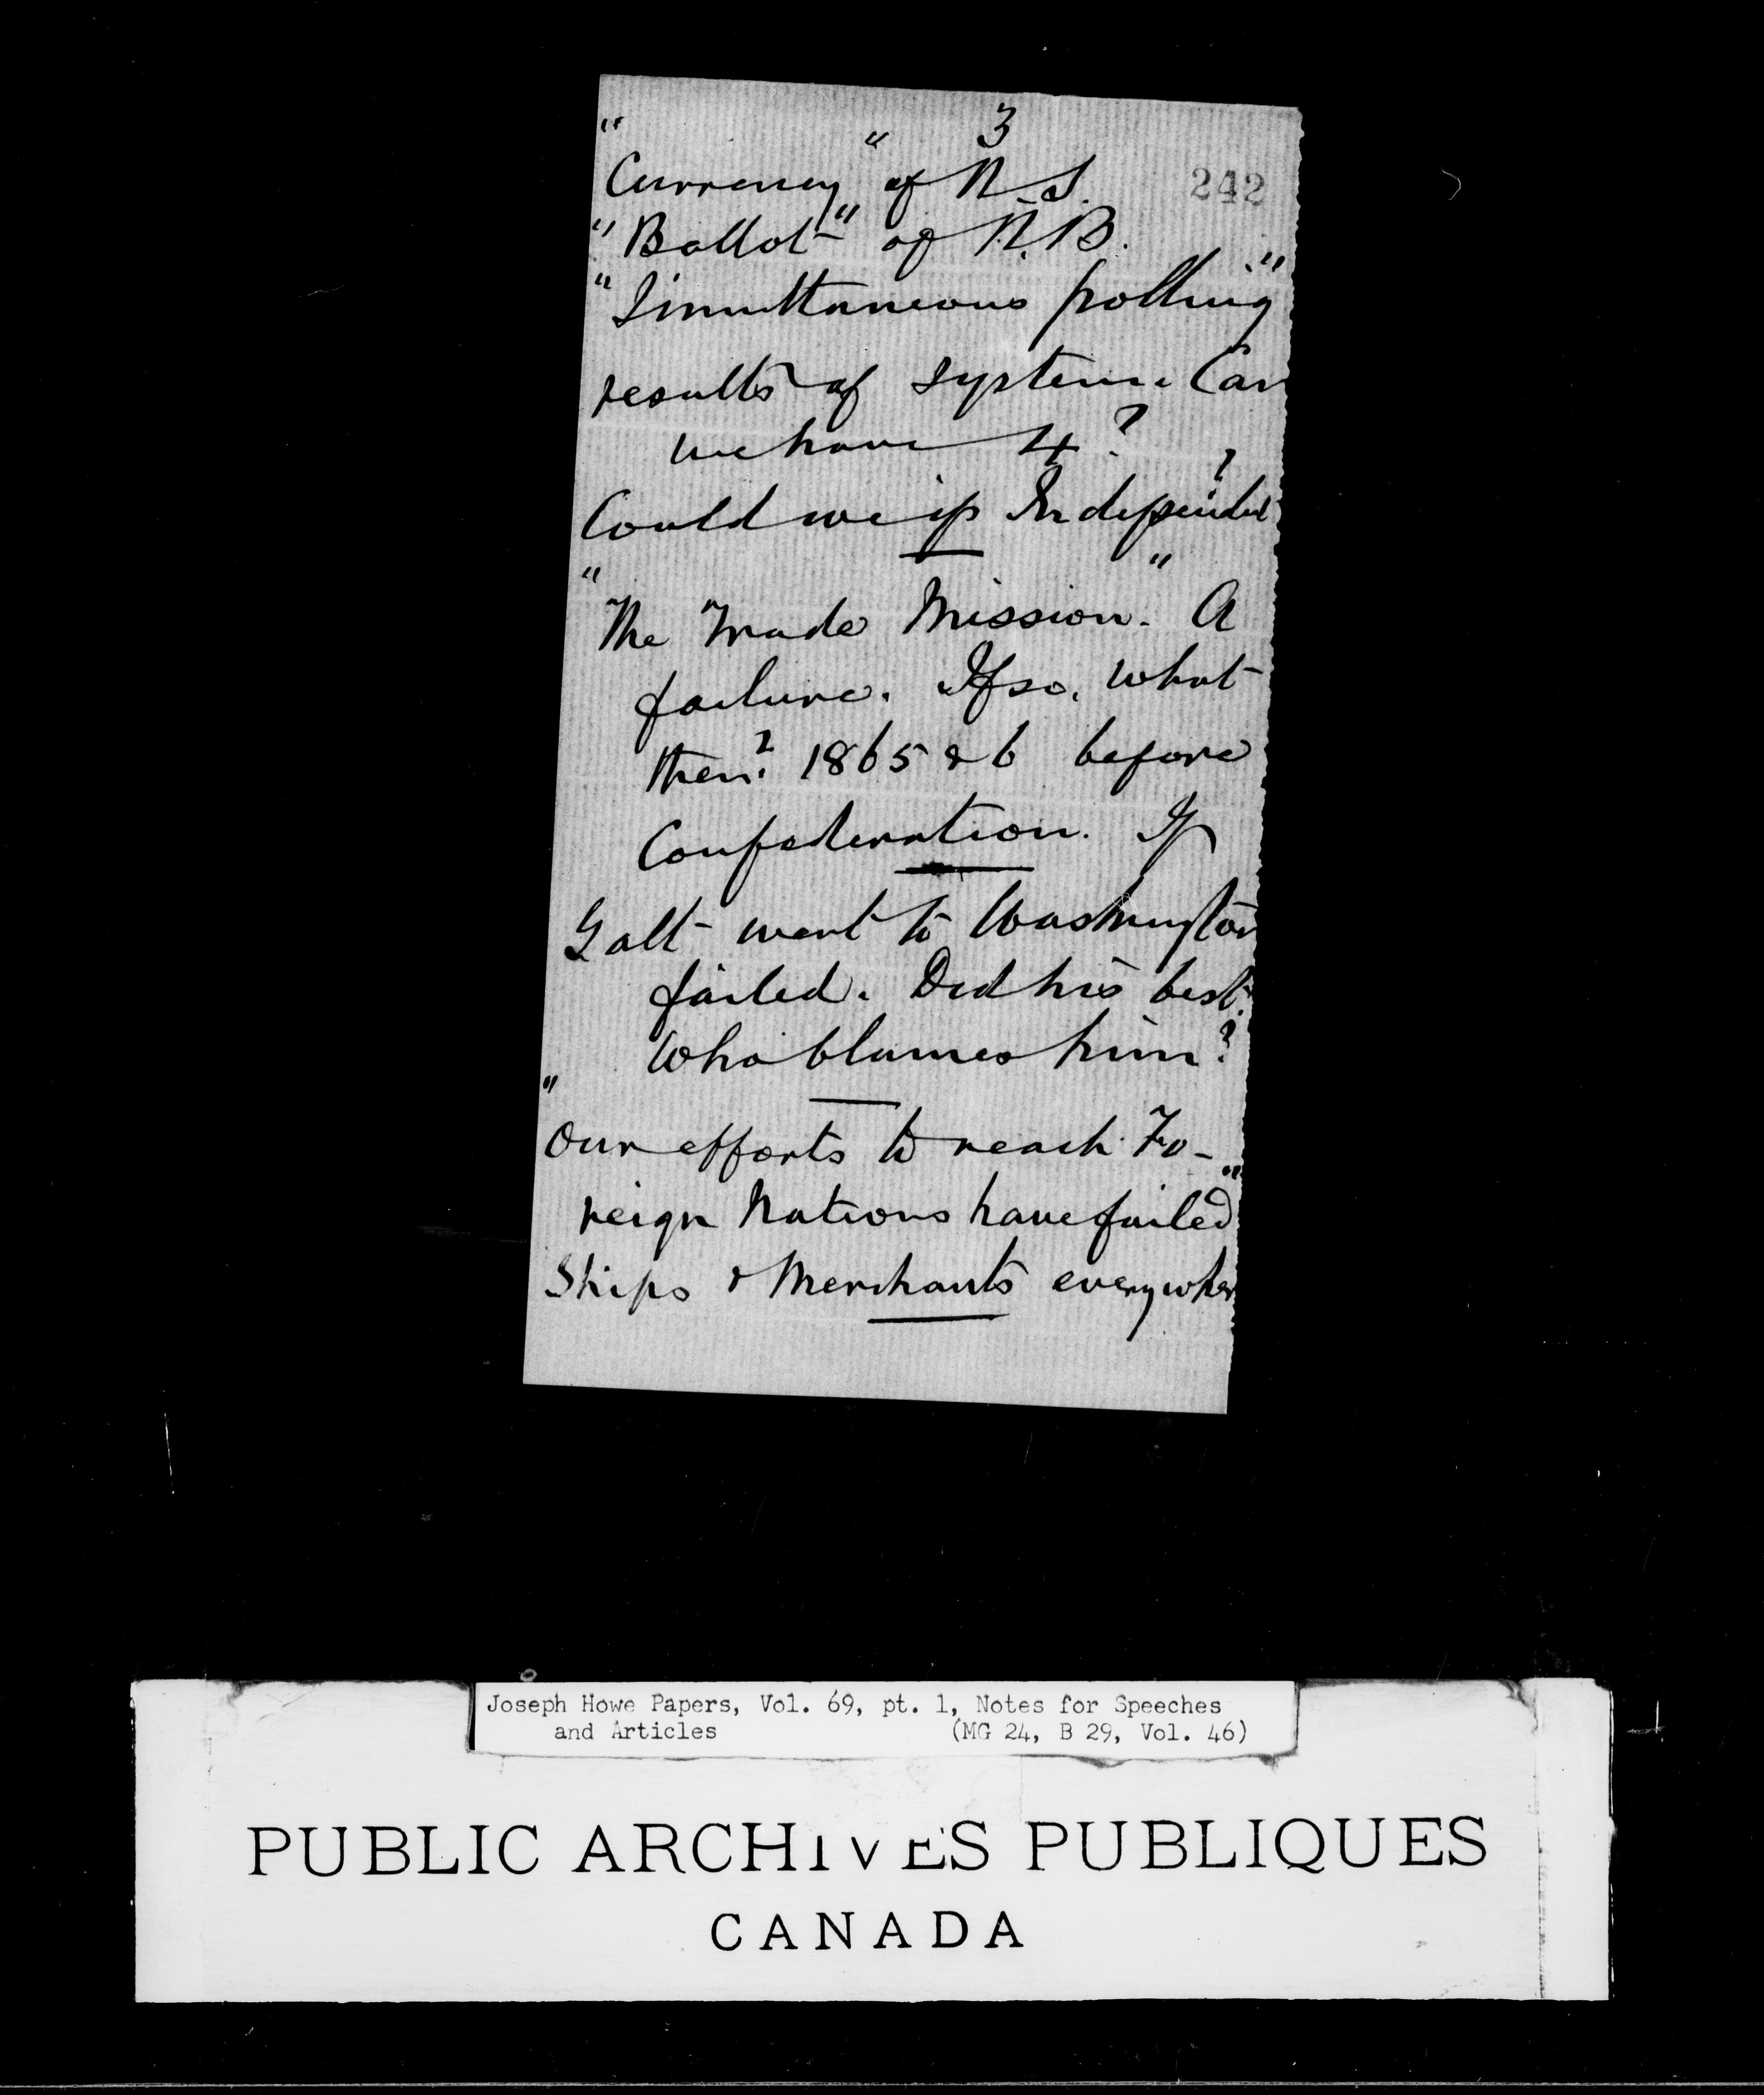 3
242
"Currency" of N S.
"Ballot" of N.B.
"Simultaneous polling"
results of system. Can
we have 4?
Could we if Independent?
"The Trade Mission." A
failure. If so, what
then? 1865 & 6 before
Confederation. If
Galt went to Washington
failed. Did his best.
Who blames him?
"Our efforts to reach Fo-
reign Nations have failed"
Ships & Merchants everywher
Joseph Howe Papers, Vol. 69, pt. 1, Notes for Speeches
and Articles (MG 24, B 29, Vol. 46)
PUBLIC ARCHIVES PUBLIQUES
CANADA